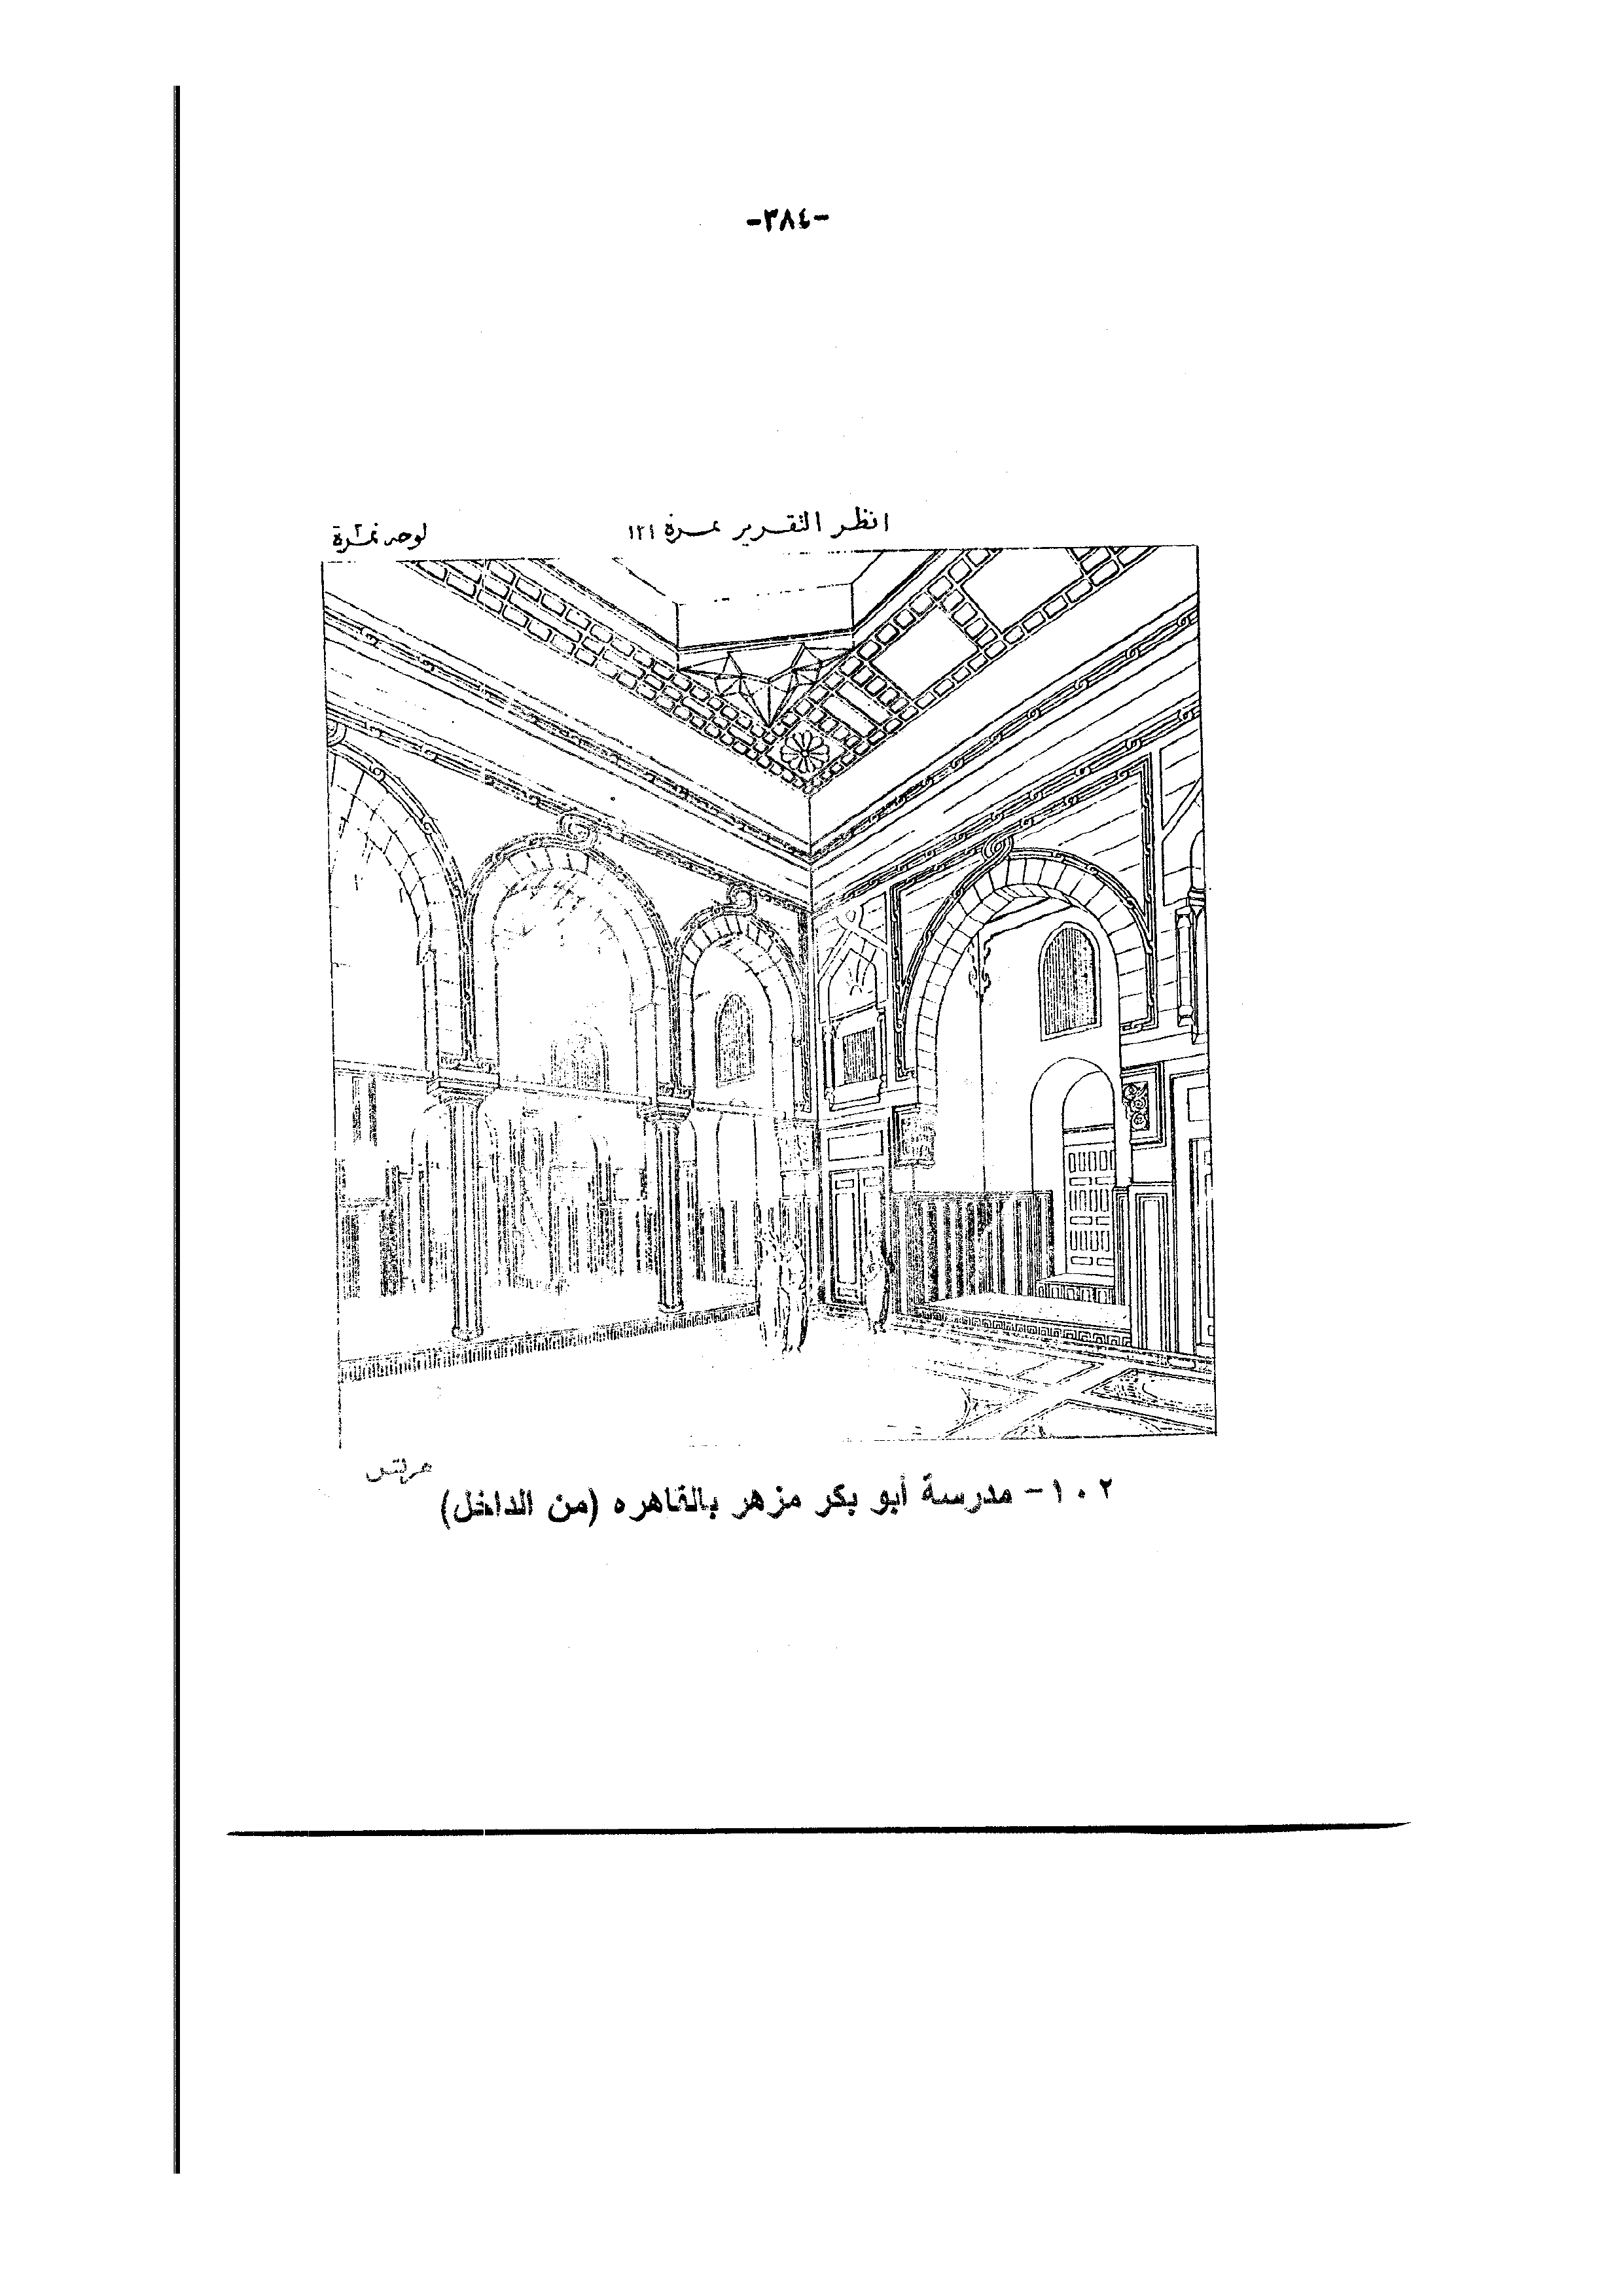 -٣٨٤-
انظر التقرير نمرة ١٢١
لوحه نمرة
١٠٢- مدرسة أبو بكر مزهر بالقاهره (من الداخل)